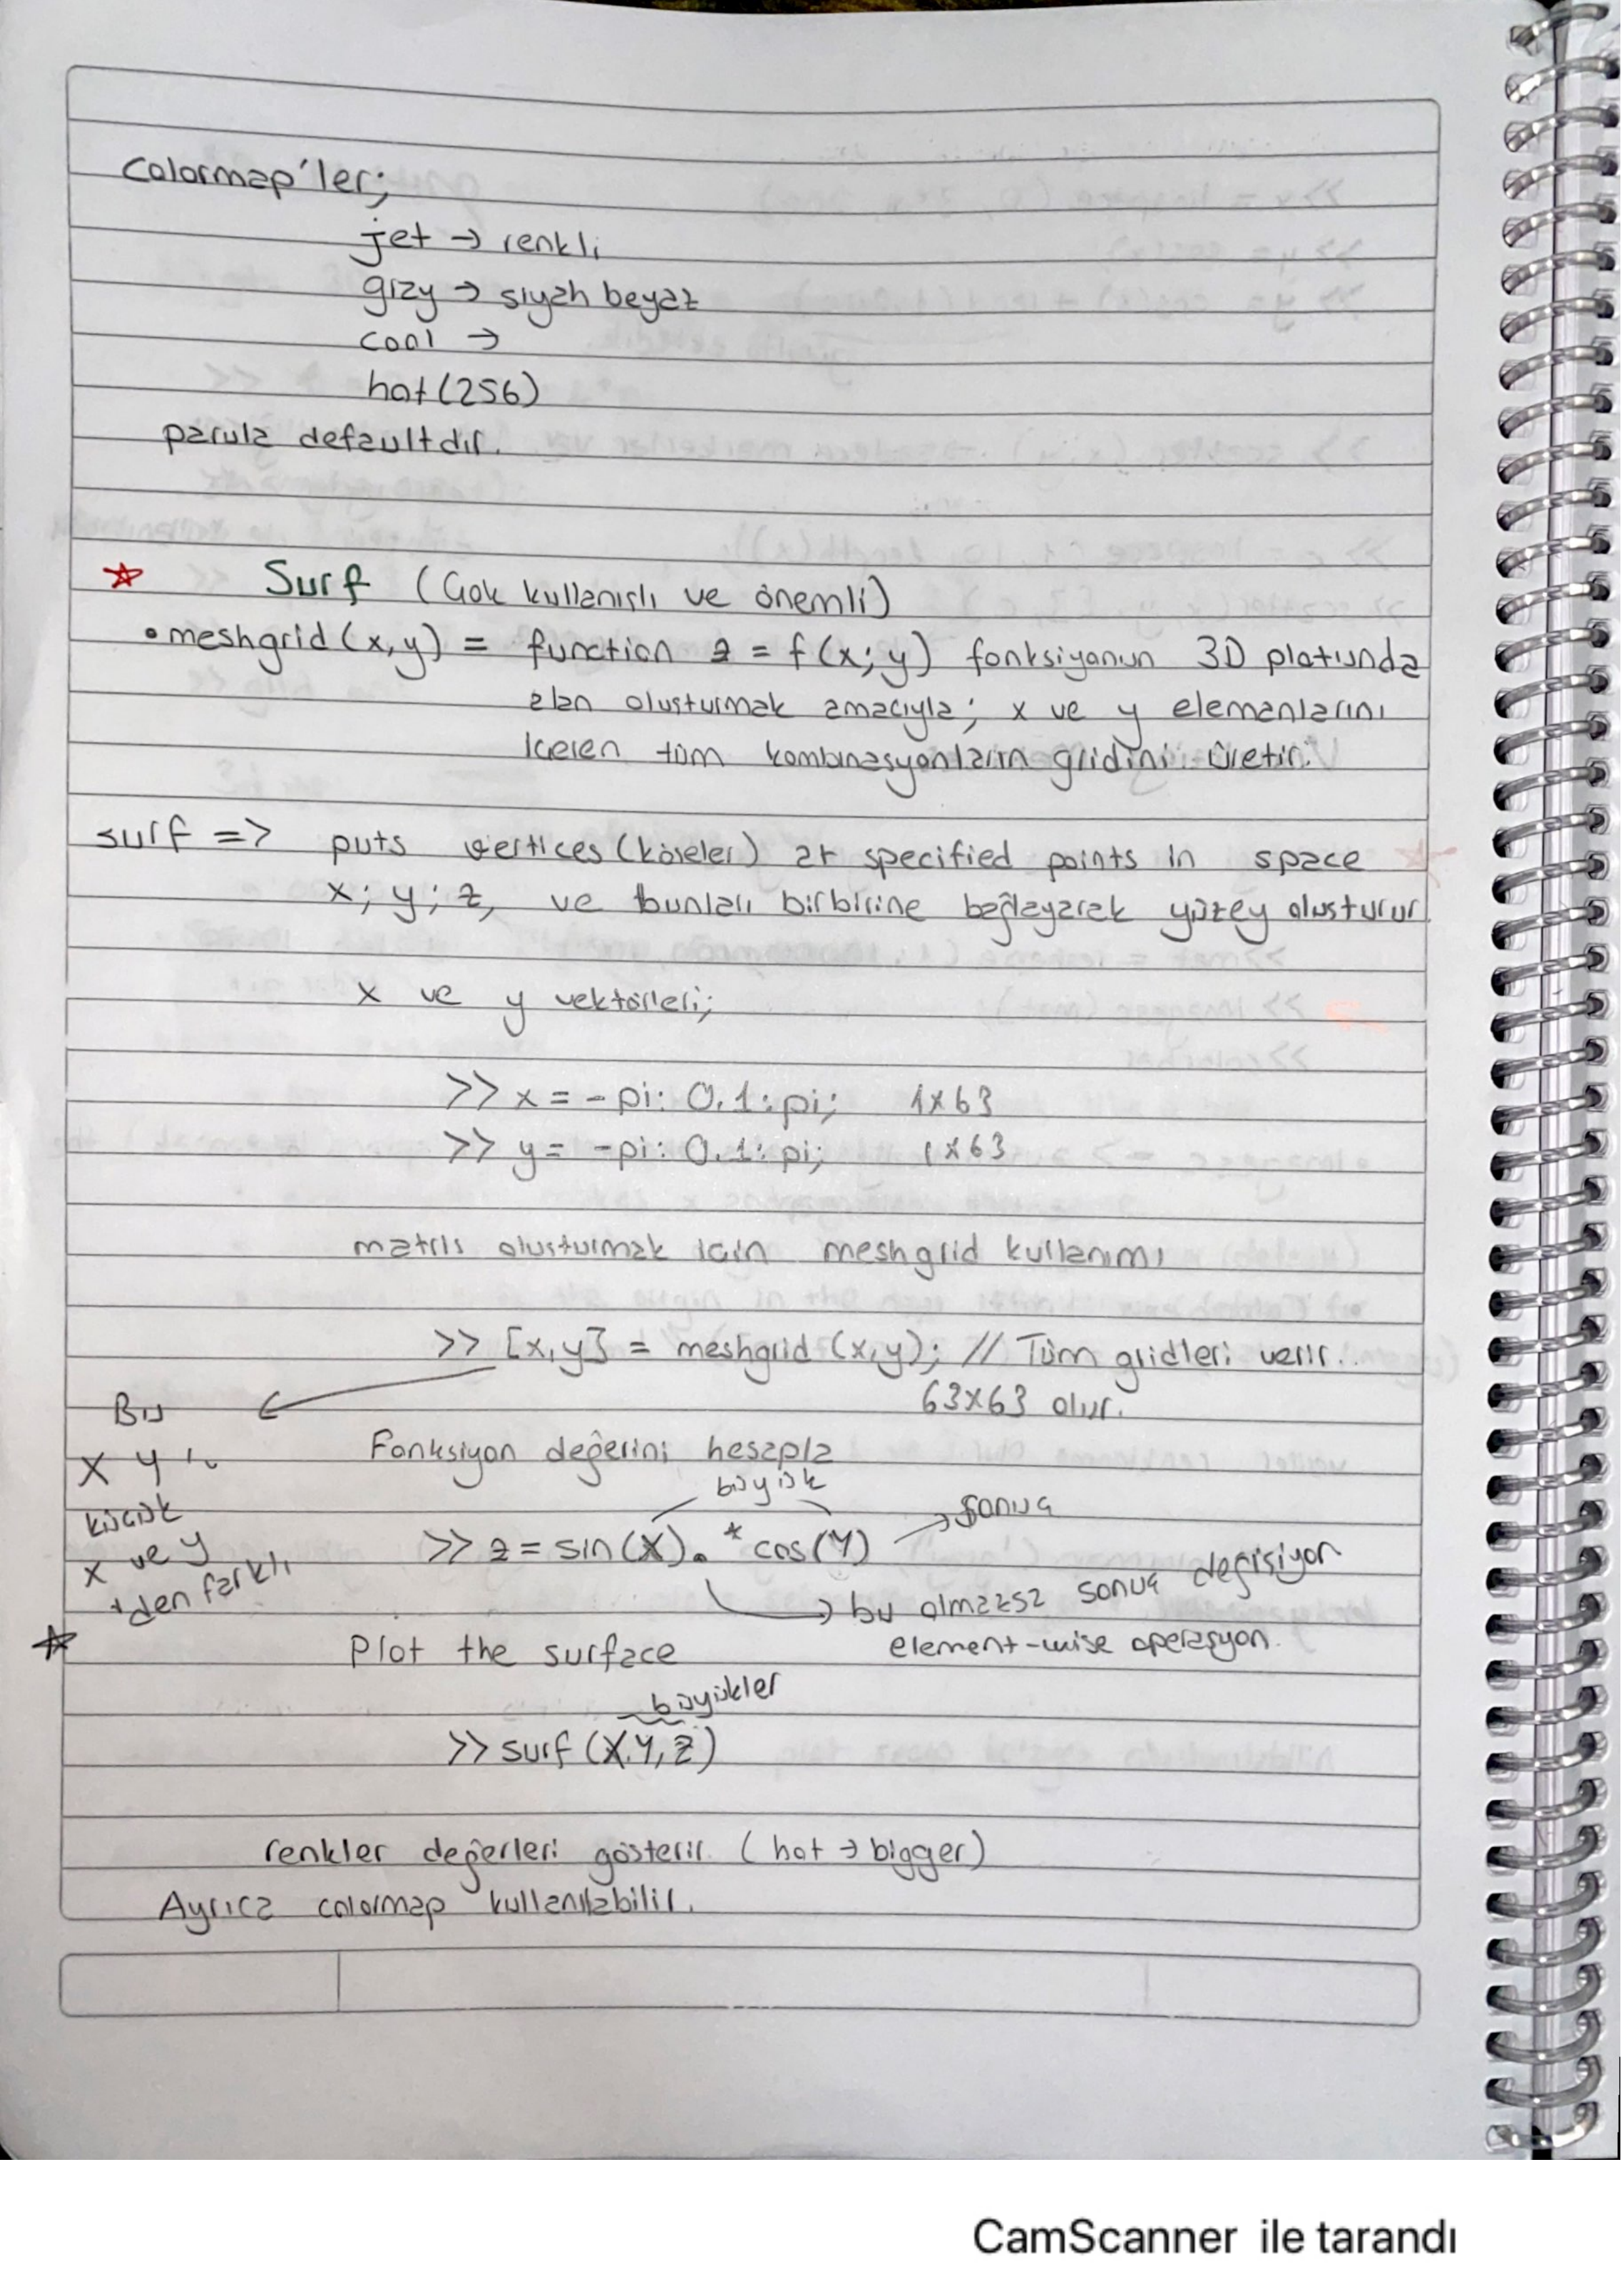 Colormap'ler;
jet → renkli
gray → siyah beyaz
cool →
hot(256)
parula defaultdır.
☆ Surf (Çok kullanışlı ve önemli)
• meshgrid (x,y) = function z = f(x;y) fonksiyonun 3D platunda
alan olusturmak amacıyla; x ve y elemanlarını
iceren tüm kombinasyonların gridini üretir.
surf => puts vertices (köseler) at specified points in space
x; y; z, ve bunları birbirine bağlayarak yüzey olusturur
x ve y vektörleri;
>> x = -pi: 0.1: pi; 1x63
>> y = -pi: 0.1: pi; 1x63
matris olusturmak icin meshgrid kullanımı
>> [x,y] = meshgrid (x,y); // Tüm gridleri verir..
63x63 olur.
Bu
X Y
kücük
x ve y
'den farklı
Fonksiyon değerini hesapla
büyük
>> z = sin(X).*cos(Y) → Sonuç
→ bu olmazsa sonuç değisiyor
element-wise operasyon.
☆ Plot the surface
büyükler
>> surf (X,Y,Z)
renkler değerleri gösterir. (hot → bigger)
Ayrıca colormap kullanılabilir.
CamScanner ile tarandı